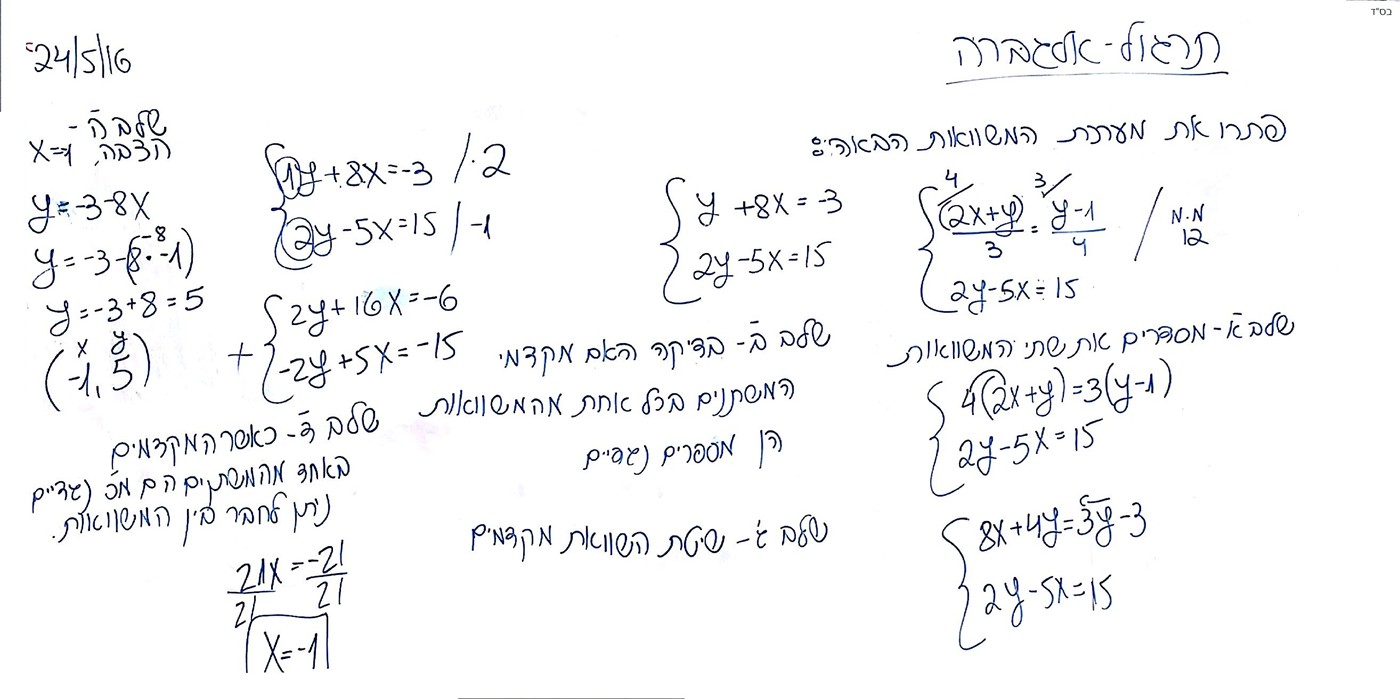 בס"ד
תרגול-אלגברה
24/5/16
פתרו את מערכת המשוואות הבאה:
4 3
(2x+y)/3 = y-1/4 / מ.מ 12
2y-5x=15
שלב א- מסדרים את שתי המשוואות
4(2x+y)=3(y-1)
2y-5x=15
8x+4y=3y-3
2y-5x=15
y+8x=-3
2y-5x=15
שלב ב- בדיקה האם מקדמי
המשתנים בכל אחת מהמשוואות
הן מספרים נגדיים
שלב ג- שיטת השוואת מקדמים
1y+8x=-3 /·2
2y-5x=15 /-1
+ 2y+16x=-6
-2y+5x=-15
שלב ד- כאשר המקדמים
באחד מהמשתנים הם מס' נגדיים
ניתן לחבר בין המשוואות.
21x/21 = -21/21
x=-1
שלב ה-
הצבה, x=-1
y=-3-8x
-8
y=-3-(8·-1)
y=-3+8=5
x y
(-1,5)